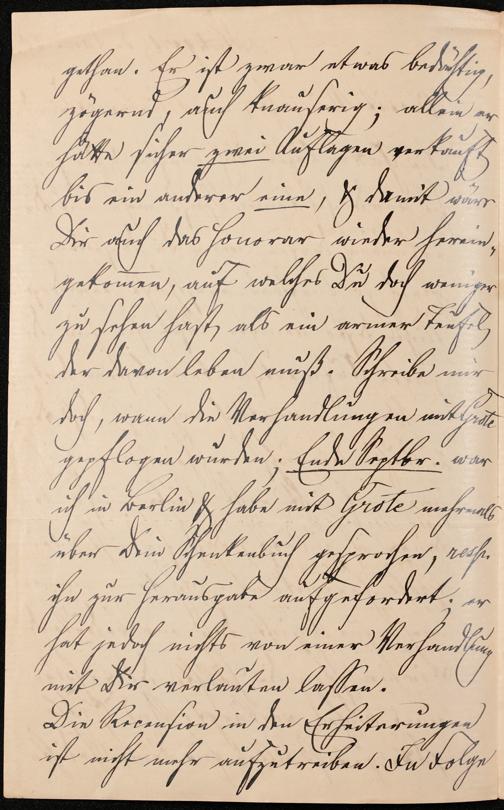 gethan. Er ist zwar etwas bedächtig,
zögernd, auch knauserig; allein er
hätte sicher zwei Auflagen verkauft
bis ein anderer eine, & damit wäre
Dir auch das Honorar wieder herein-
gekommen, auf welches Du doch weniger
zu sehen hast, als ein armer Teufel,
der davon leben muß. Schreibe mir
doch, wann die Verhandlungen mit Grote
gepflogen wurden; Ende Septbr. war
ich in Berlin & habe mit Grote mehrmals
über Dein Schenkenbuch gesprochen, resp.
ihn zur Herausgabe aufgefordert; er
hat jedoch nichts von einer Verhandlung
mit Dir verlauten lassen.
Die Recension in den Erheiterungen
ist nicht mehr aufzutreiben. In Folge